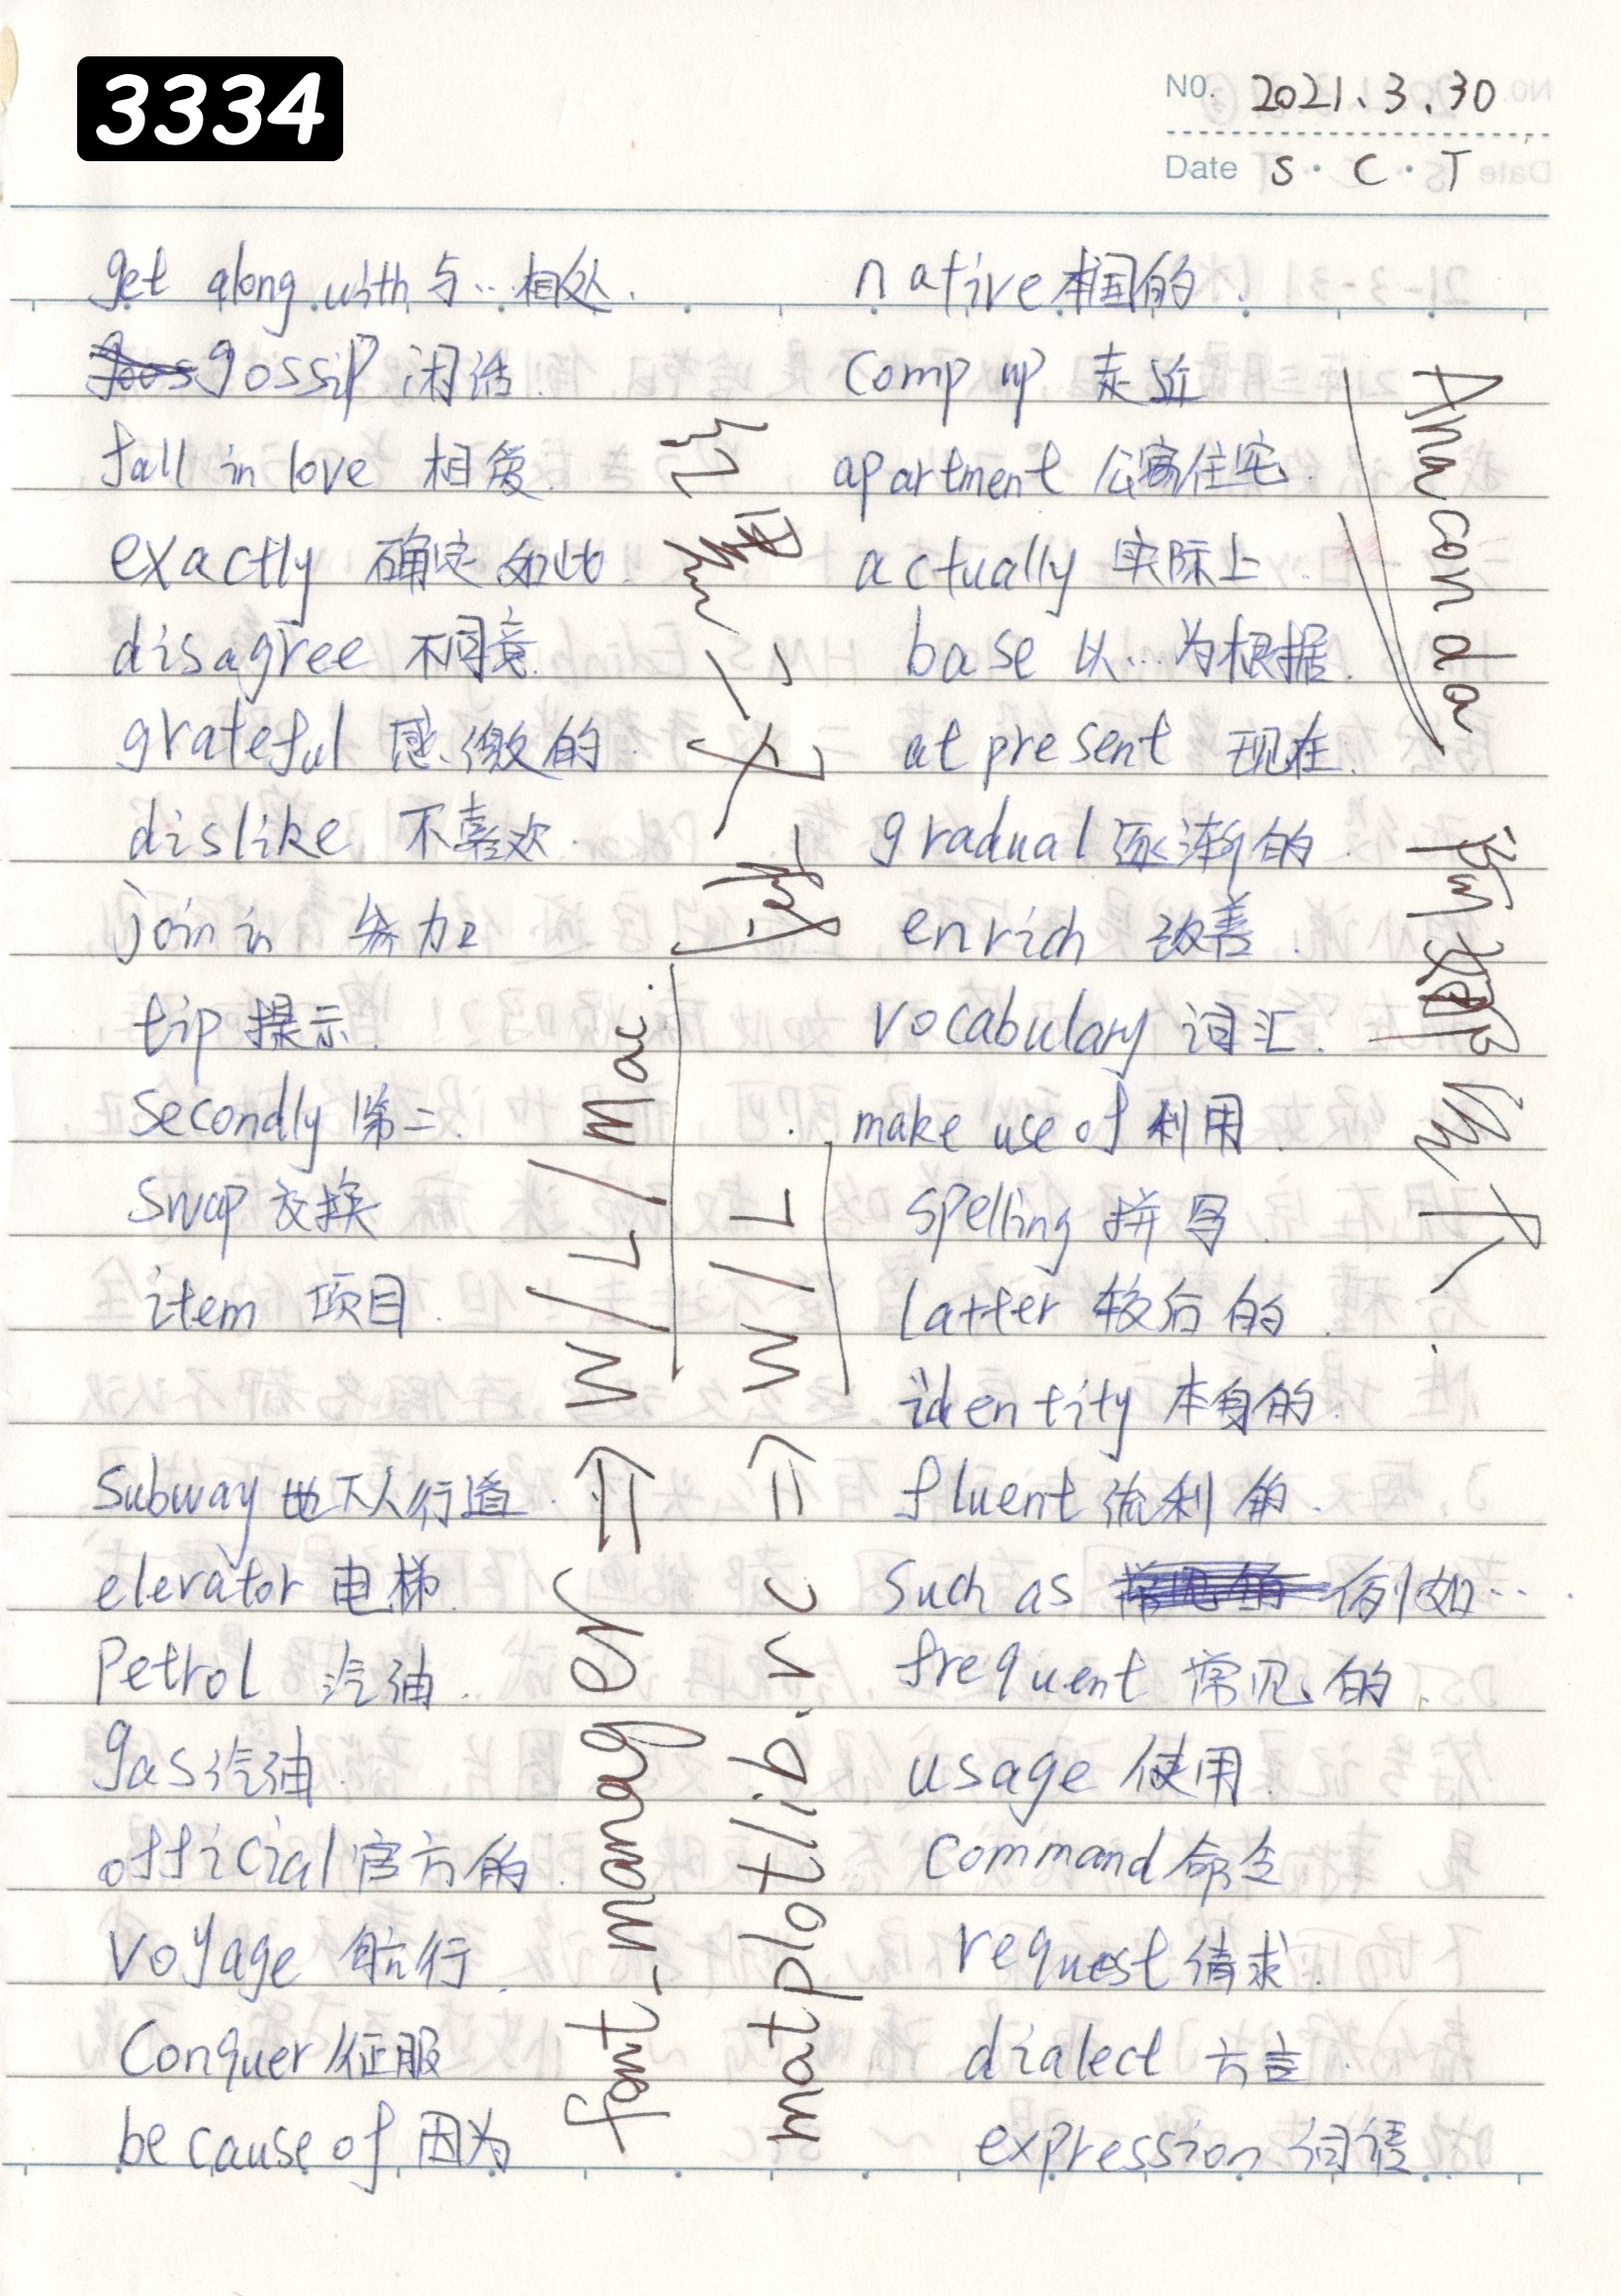 3334
NO. 2021.3.30
Date S·C·T
get along with 与…相处.
gossip 闲话.
fall in love 相爱.
exactly 确定如此.
disagree 不同意.
grateful 感激的.
dislike 不喜欢.
join in 参加
tip 提示.
Secondly 第二.
Swap 交换
item 项目.
Subway 地下人行道.
elerator 电梯.
Petrol 汽油.
gas 汽油.
official 官方的.
Voyage 航行.
Conquer 征服
because of 因为
native 本国的.
Comp up 走近
apartment 公寓住宅.
actually 实际上.
base 以…为根据.
at present 现在.
gradual 逐渐的.
enrich 改善.
Vocabulary 词汇.
make use of 利用.
Spelling 拼写.
Latter 较后的.
identity 本身的.
fluent 流利的.
Such as 例如…
frequent 常见的.
usage 使用.
Command 命令
request 请求.
dialect 方言.
expression 词语.
font-manager ⇒ W/L/Mac.
matplotlib.rc ⇒ W/L
Anaconda